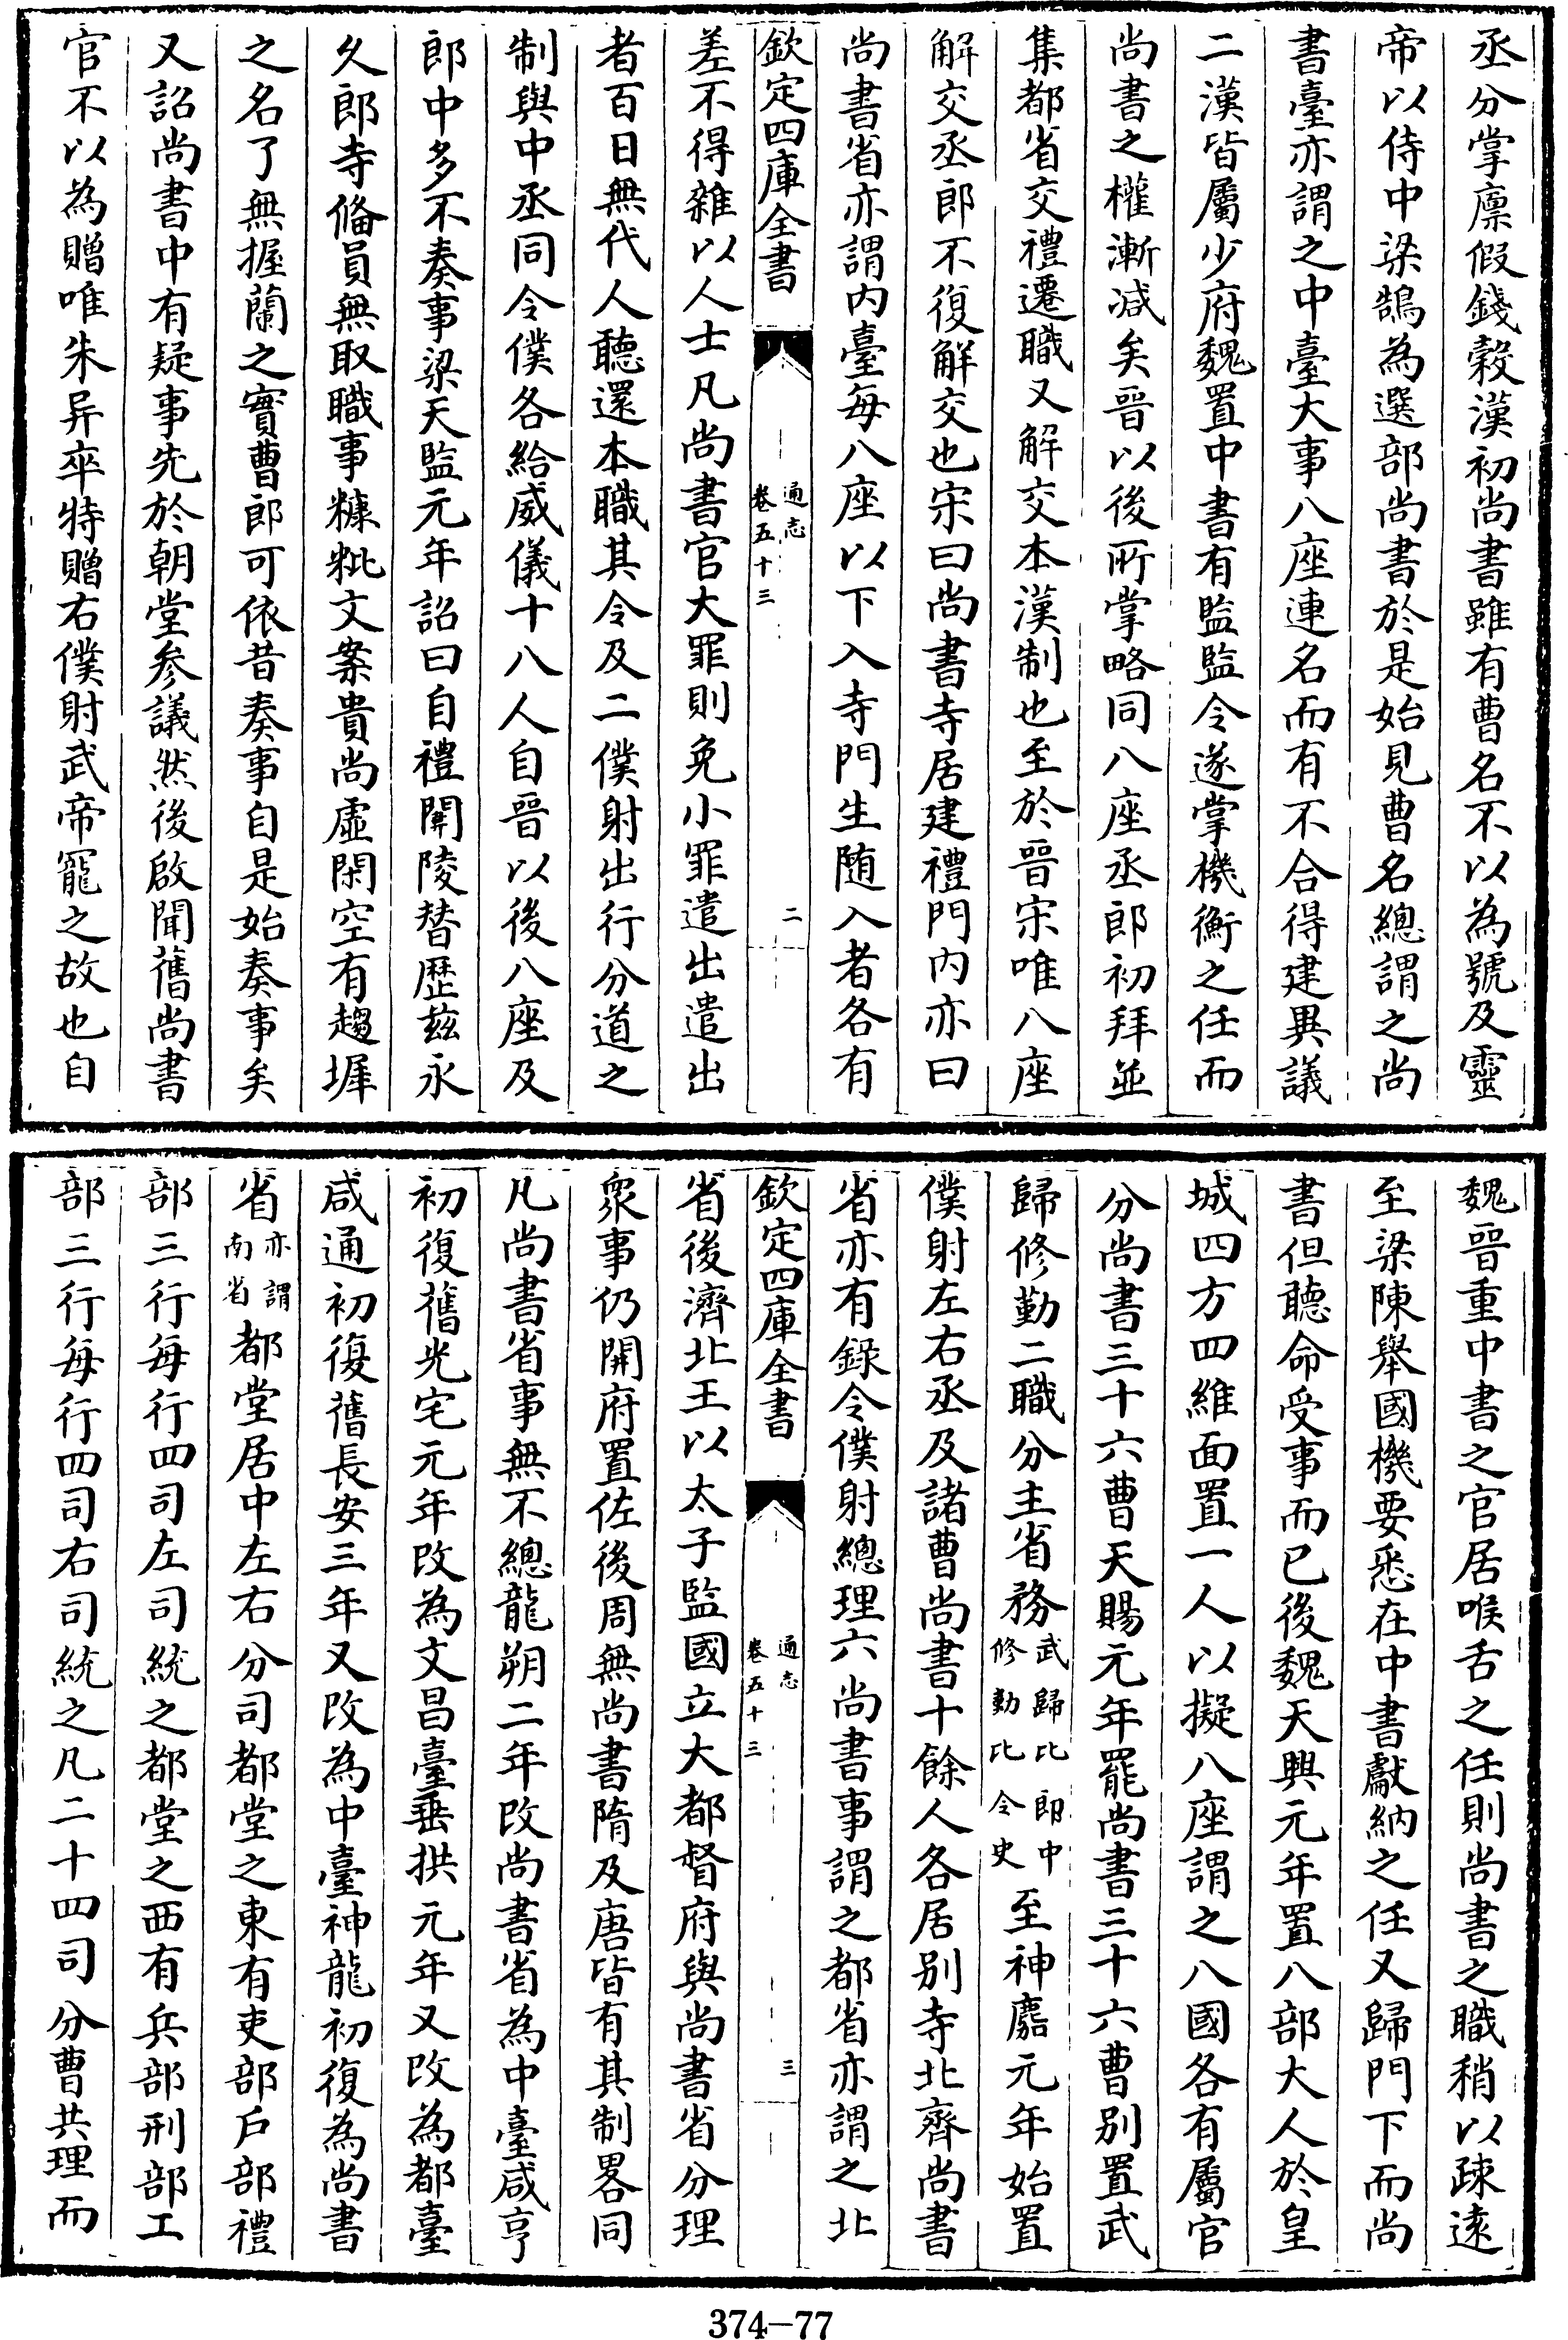 丞分掌廩假錢穀漢初尚書雖有曹名不以為號及靈
帝以侍中梁鵠為選部尚書於是始見曹名總謂之尚
書臺亦謂之中臺大事八座連名而有不合得建異議
二漢皆屬少府魏置中書有監監令遂掌機衡之任而
尚書之權漸減矣晉以後所掌略同八座丞郎初拜並
集都省交禮遷職又解交本漢制也至於晉宋唯八座
解交丞郎不復解交也宋曰尚書寺居建禮門內亦曰
尚書省亦謂內臺每八座以下入寺門生随入者各有
欽定四庫全書
通志
卷五十三
二
差不得雜以人士凡尚書官大罪則免小罪遣出遣出
者百日無代人聽還本職其令及二僕射出行分道之
制與中丞同令僕各給威儀十八人自晉以後八座及
郎中多不奏事梁天監元年詔曰自禮闈陵替歷茲永
久郎寺偹員無取職事糠粃文案貴尚虛閑空有趨墀
之名了無握蘭之實曹郎可依昔奏事自是始奏事矣
又詔尚書中有疑事先於朝堂參議然後啟聞舊尚書
官不以為贈唯朱异卒特贈右僕射武帝寵之故也自
魏晉重中書之官居喉舌之任則尚書之職稍以疎遠
至梁陳舉國機要悉在中書獻納之任又歸門下而尚
書但聽命受事而已後魏天興元年置八部大人於皇
城四方四維面置一人以擬八座謂之八國各有屬官
分尚書三十六曹天賜元年罷尚書三十六曹別置武
歸修勤二職分主省務武歸比郎中修勤比令史至神麚元年始置
僕射左右丞及諸曹尚書十餘人各居別寺北齊尚書
省亦有錄令僕射總理六尚書事謂之都省亦謂之北
欽定四庫全書
通志
卷五十三
三
省後濟北王以太子監國立大都督府與尚書省分理
衆事仍開府置佐後周無尚書隋及唐皆有其制畧同
凡尚書省事無不總龍朔二年改尚書省為中臺咸亨
初復舊光宅元年改為文昌臺垂拱元年又改為都臺
咸通初復舊長安三年又改為中臺神龍初復為尚書
省亦謂南省都堂居中左右分司都堂之東有吏部戶部禮
部三行每行四司左司統之都堂之西有兵部刑部工
部三行每行四司右司統之凡二十四司分曹共理而
374-77